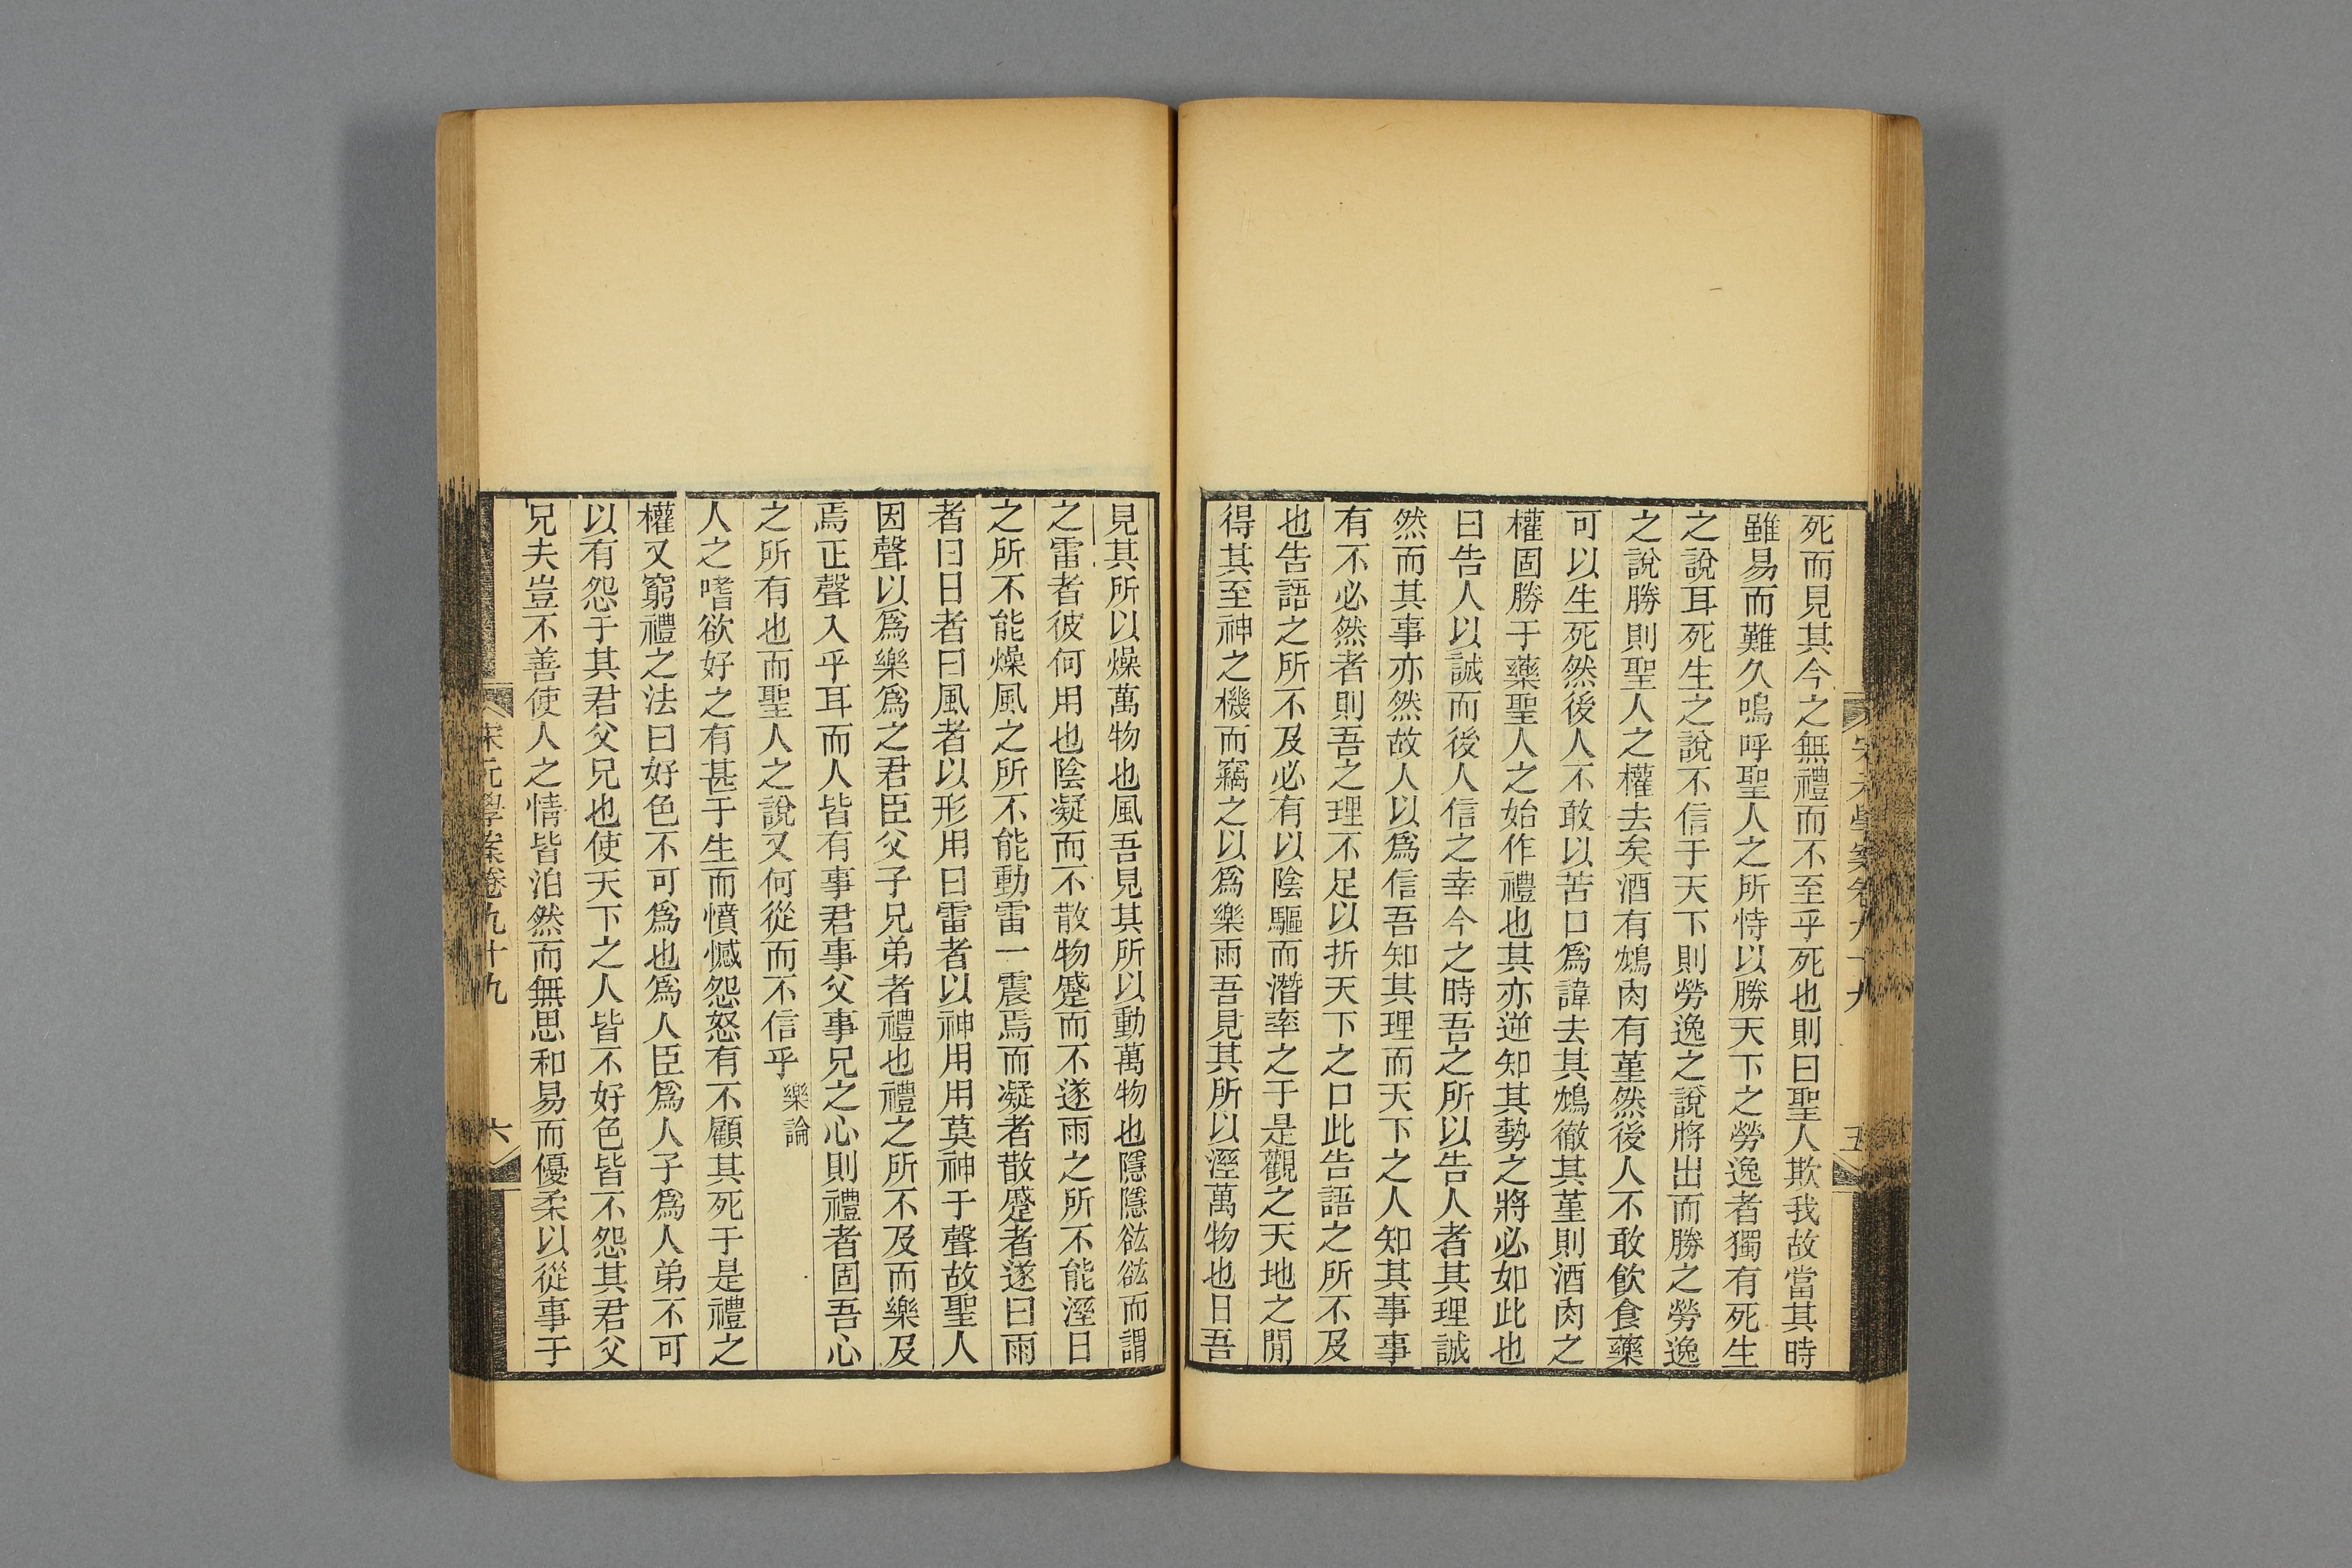 宋元學案卷九十九
五
死而見其今之無禮而不至乎死也則曰聖人欺我故當其時
雖易而難久嗚呼聖人之所恃以勝天下之勞逸者獨有死生
之說耳死生之說不信于天下則勞逸之說將出而勝之勞逸
之說勝則聖人之權去矣酒有鴆肉有堇然後人不敢飲食藥
可以生死然後人不敢以苦口爲諱去其鴆徹其堇則酒肉之
權固勝于藥聖人之始作禮也其亦逆知其勢之將必如此也
曰告人以誠而後人信之幸今之時吾之所以告人者其理誠
然而其事亦然故人以爲信吾知其理而天下之人知其事事
有不必然者則吾之理不足以折天下之口此告語之所不及
也告語之所不及必有以陰驅而潛率之于是觀之天地之閒
得其至神之機而竊之以爲樂雨吾見其所以溼萬物也日吾
見其所以燥萬物也風吾見其所以動萬物也隱隱谹谹而謂
之雷者彼何用也陰凝而不散物蹙而不遂雨之所不能溼日
之所不能燥風之所不能動雷一震焉而凝者散蹙者遂曰雨
者曰日者曰風者以形用曰雷者以神用用莫神于聲故聖人
因聲以爲樂爲之君臣父子兄弟者禮也禮之所不及而樂及
焉正聲入乎耳而人皆有事君事父事兄之心則禮者固吾心
之所有也而聖人之說又何從而不信乎樂論
人之嗜欲好之有甚于生而憤憾怨怒有不顧其死于是禮之
權又窮禮之法曰好色不可爲也爲人臣爲人子爲人弟不可
以有怨于其君父兄也使天下之人皆不好色皆不怨其君父
兄夫豈不善使人之情皆泊然而無思和易而優柔以從事于
宋元學案卷九十九
六